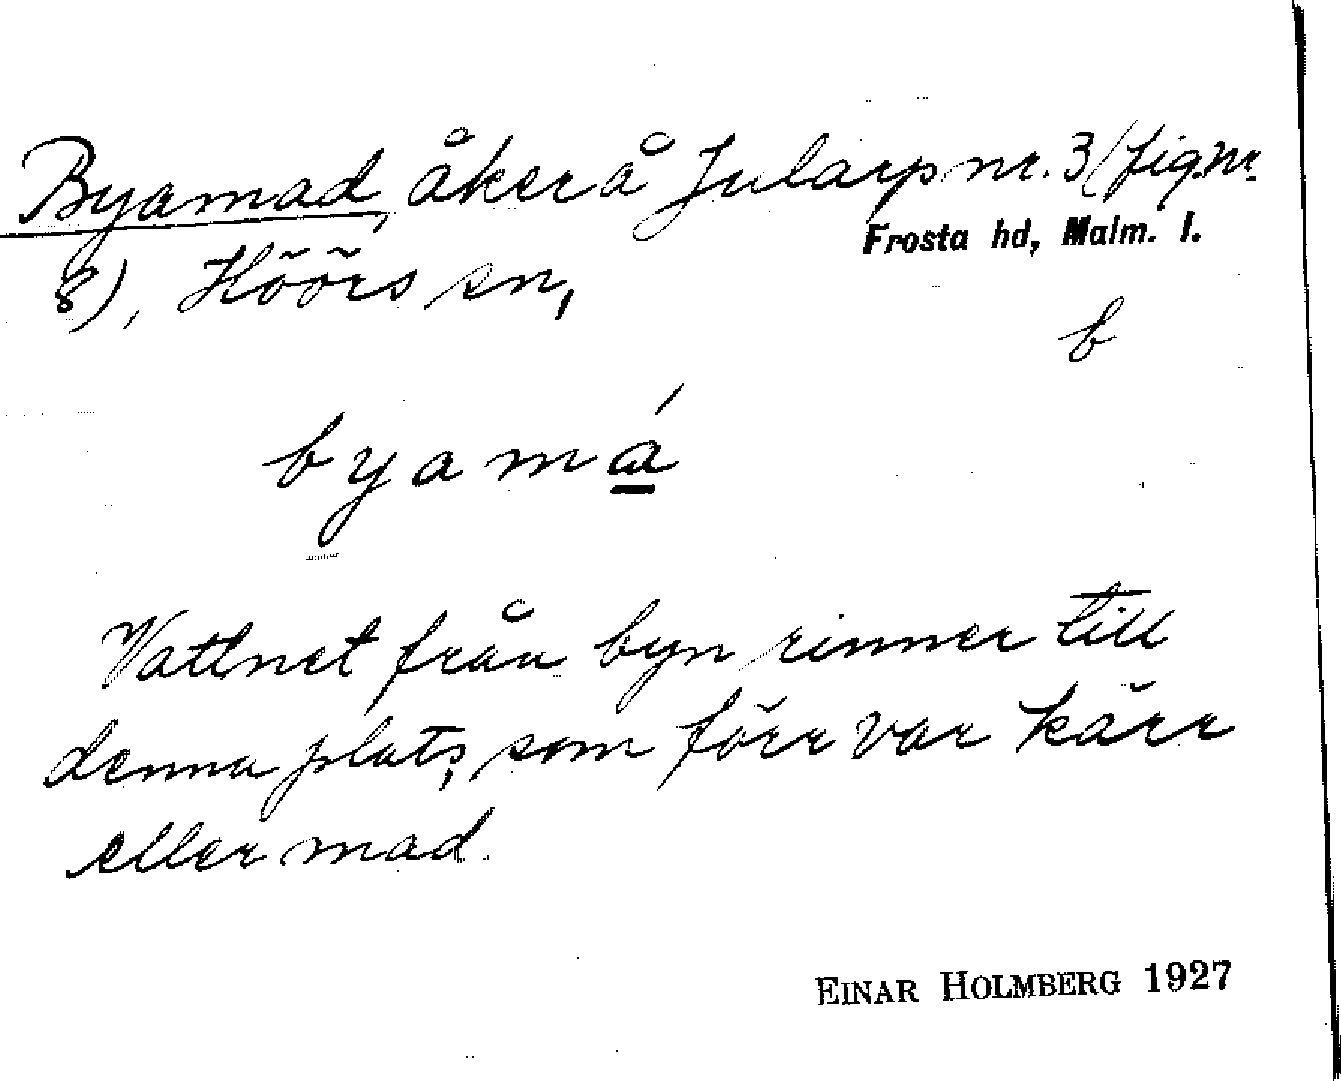 Byamad, åker å Jularp nr. 3 (fig. nr.
Frosta hd, Malm. l.
8), Höörs sn,
b
byamá
Vattnet från byn rinner till
denna plats, som förr var kärr
eller mad.
EINAR HOLMBERG 1927